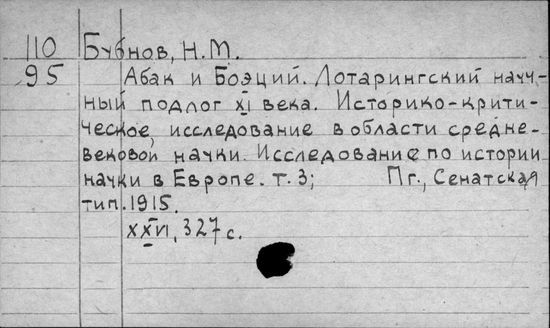 110 Бубнов, Н.М.
95 Абак и Боэций. Лотарингский науч-
ный подлог XI века. Историко-крити-
ческое исследование в области средне-
вековой науки. Исследование по истории
науки в Европе. т. 3; Пг., Сенатская
тип. 1915.
XXVI, 327 с.